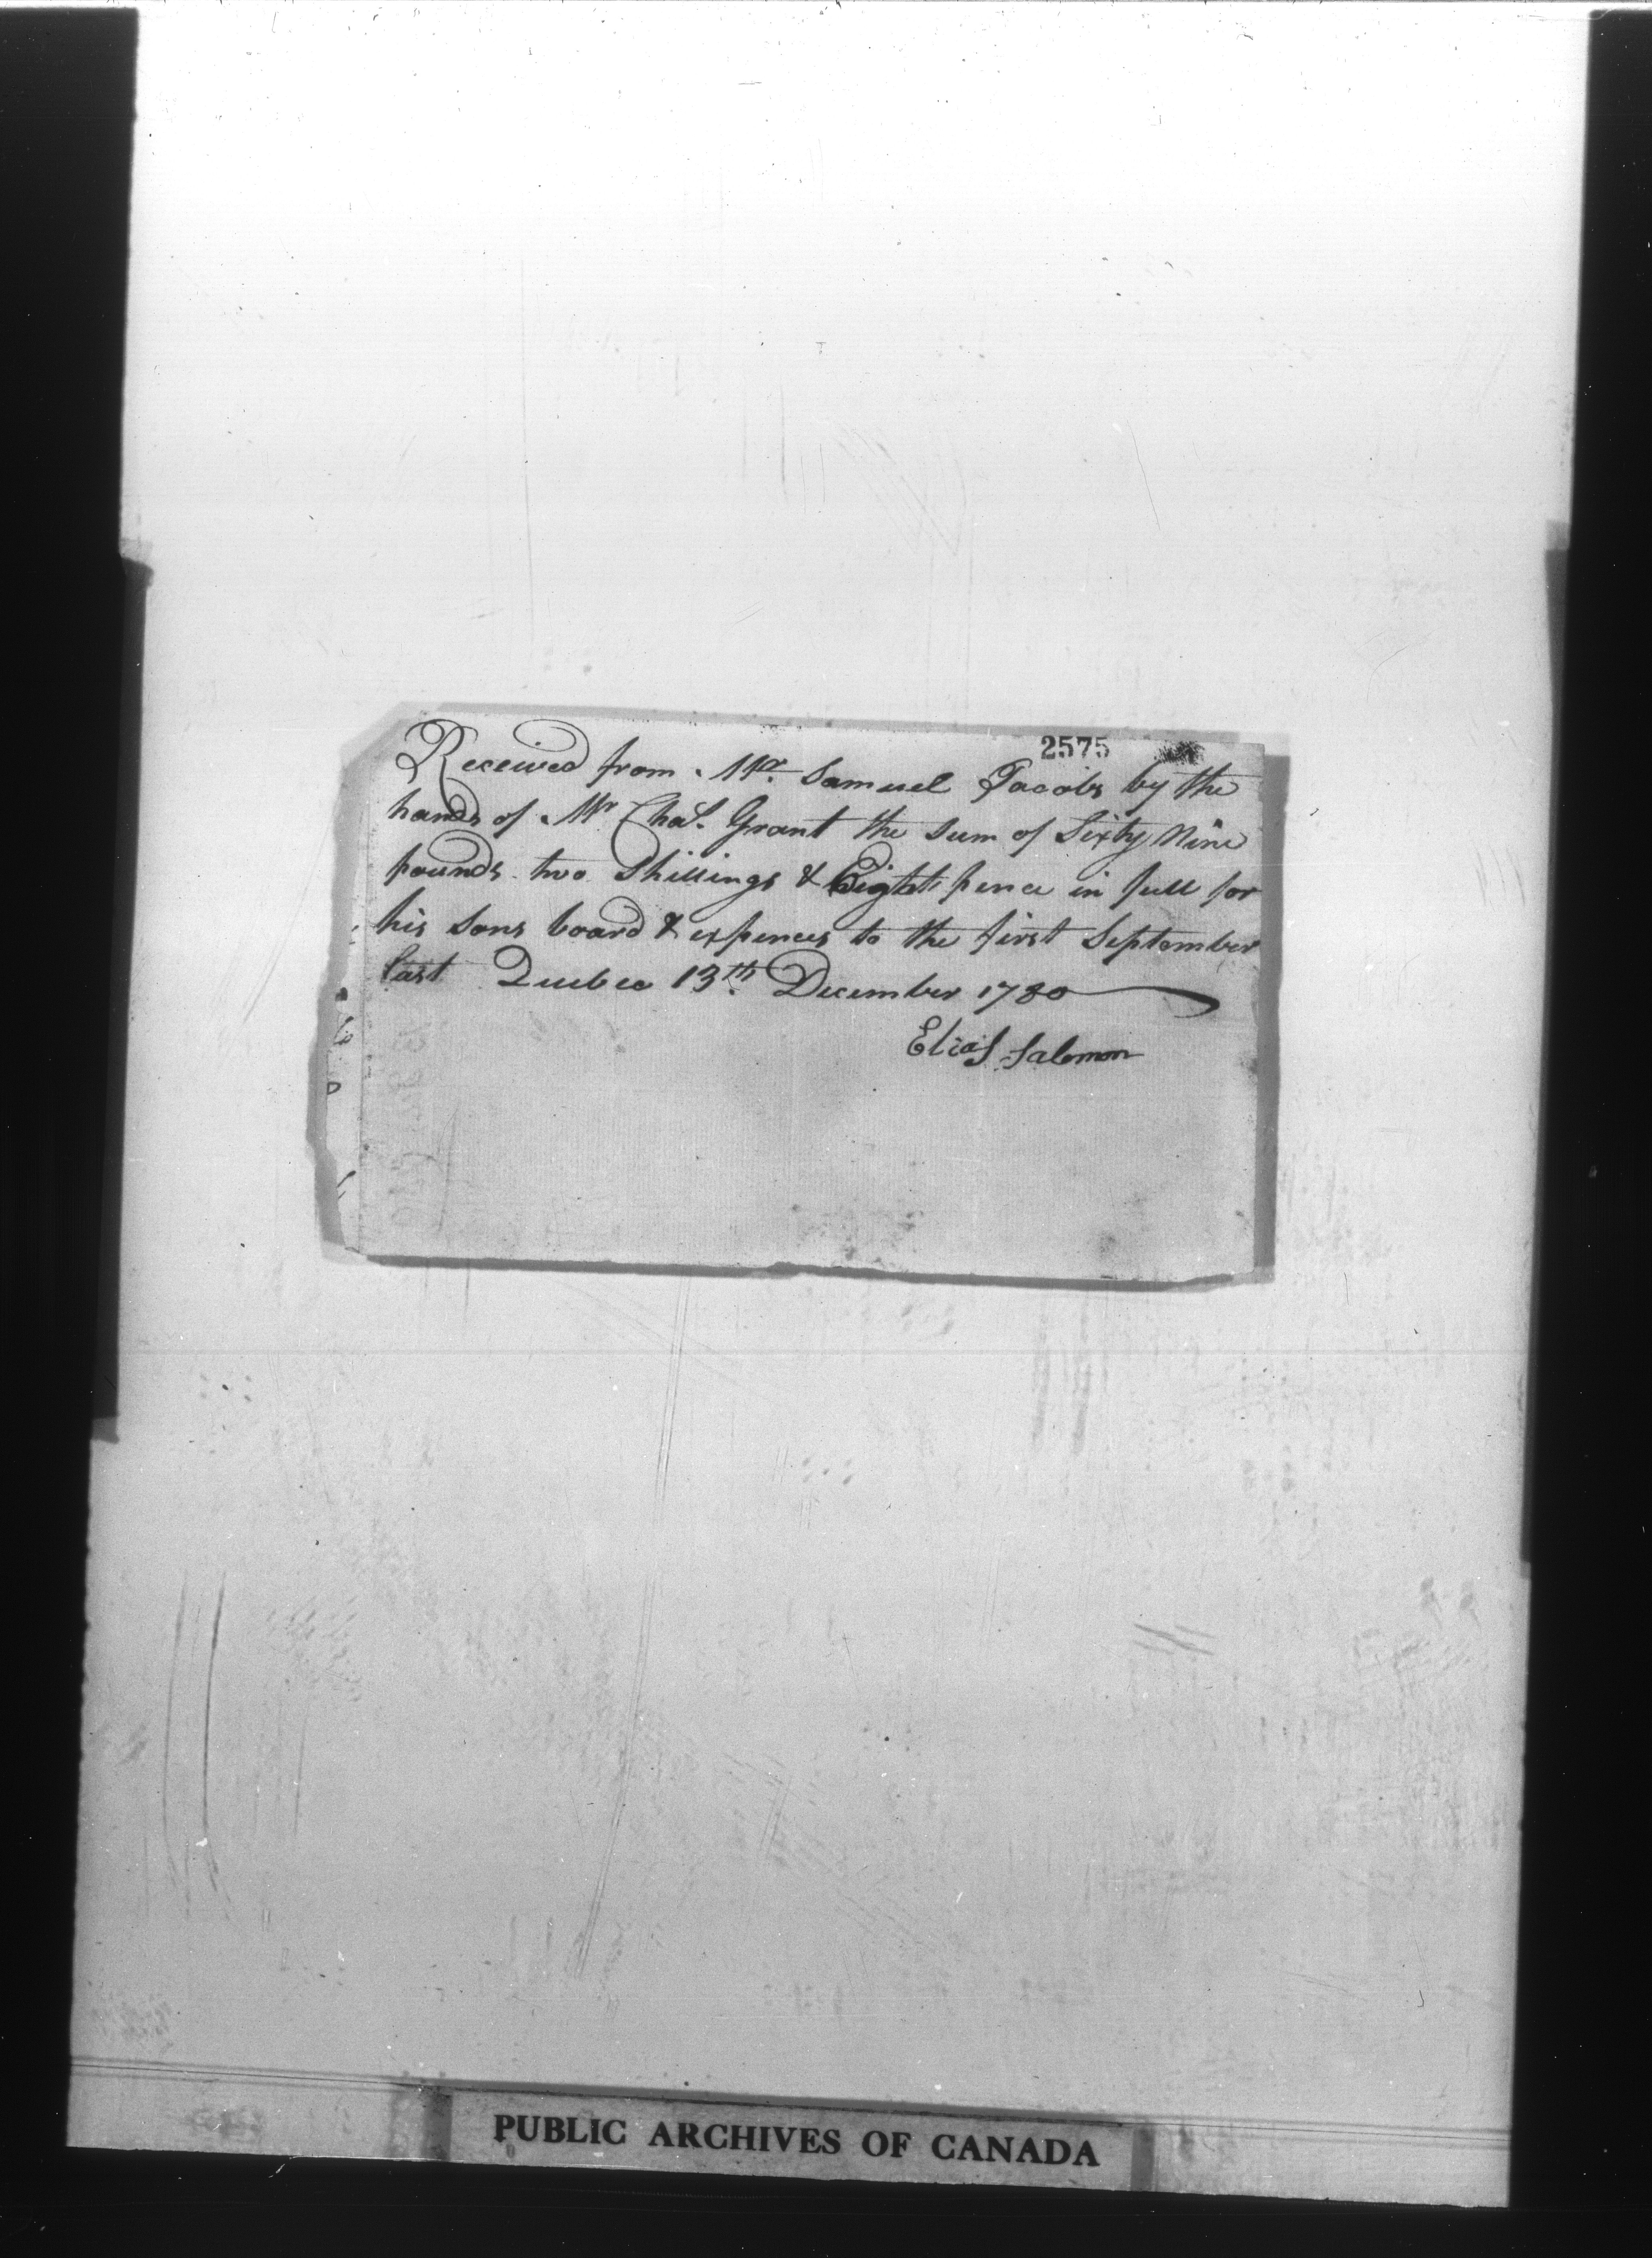 2575
Received from Mr. Samuel Jacobs by the
hands of Mr Chas. Grant the sum of Sixty Nine
pounds two Shillings & Eight pence in full for
his sons board & expences to the first September
last Quebec 13th. December 1780
Elias Salomon
PUBLIC ARCHIVES OF CANADA